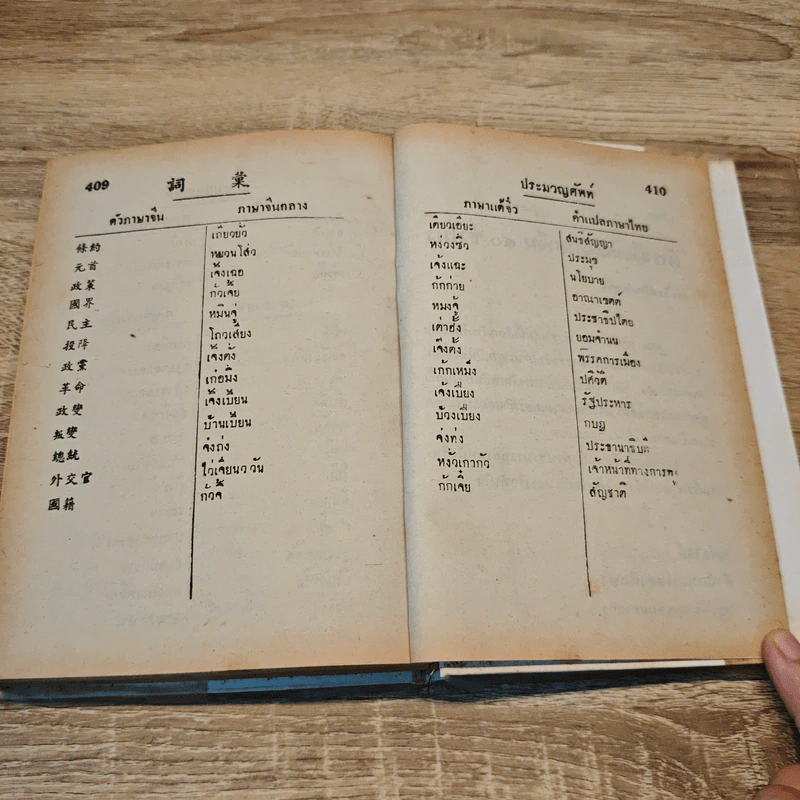 409
詞 彙
ตัวภาษาจีน ภาษาจีนกลาง
條約 เถียวยัว
元首 หยวนโส่ว
政策 เจิ้งเฉอ
國界 ก๋วเจี้ย
民主 หมินจู่
投降 โถวเสียง
政黨 เจิ้งตั้ง
革命 เก๋อมิ่ง
政變 เจิ้งเปี้ยน
叛變 บ้านเปี้ยน
總統 จ๋งถ่ง
外交官 ไว่เจียนว วัน
國籍 ก๋วจี๋
ประมวญศัพท์ 410
ภาษาแต้จิ๋ว คำแปลภาษาไทย
เตียวเอียะ สนธิสัญญา
หง่วงซิ่ว ประมุข
เจ้งแฉะ นโยบาย
กักก่าย อาณาเขตต์
หมงจู้ ประชาธิปไตย
เต่าฮั้ง ยอมจำนน
เจ็งตั้ง พรรคการเมือง
เก้กเหม็ง ปติวัติ
เจ้งเปี่ยง รัฐประหาร
บ้วงเปี่ยง กบฎ
จ๋งท่ง ประธานาธิบดี
หงัวเกากัว เจ้าหน้าที่ทางการทูต
กักเจี๋ย สัญชาติ